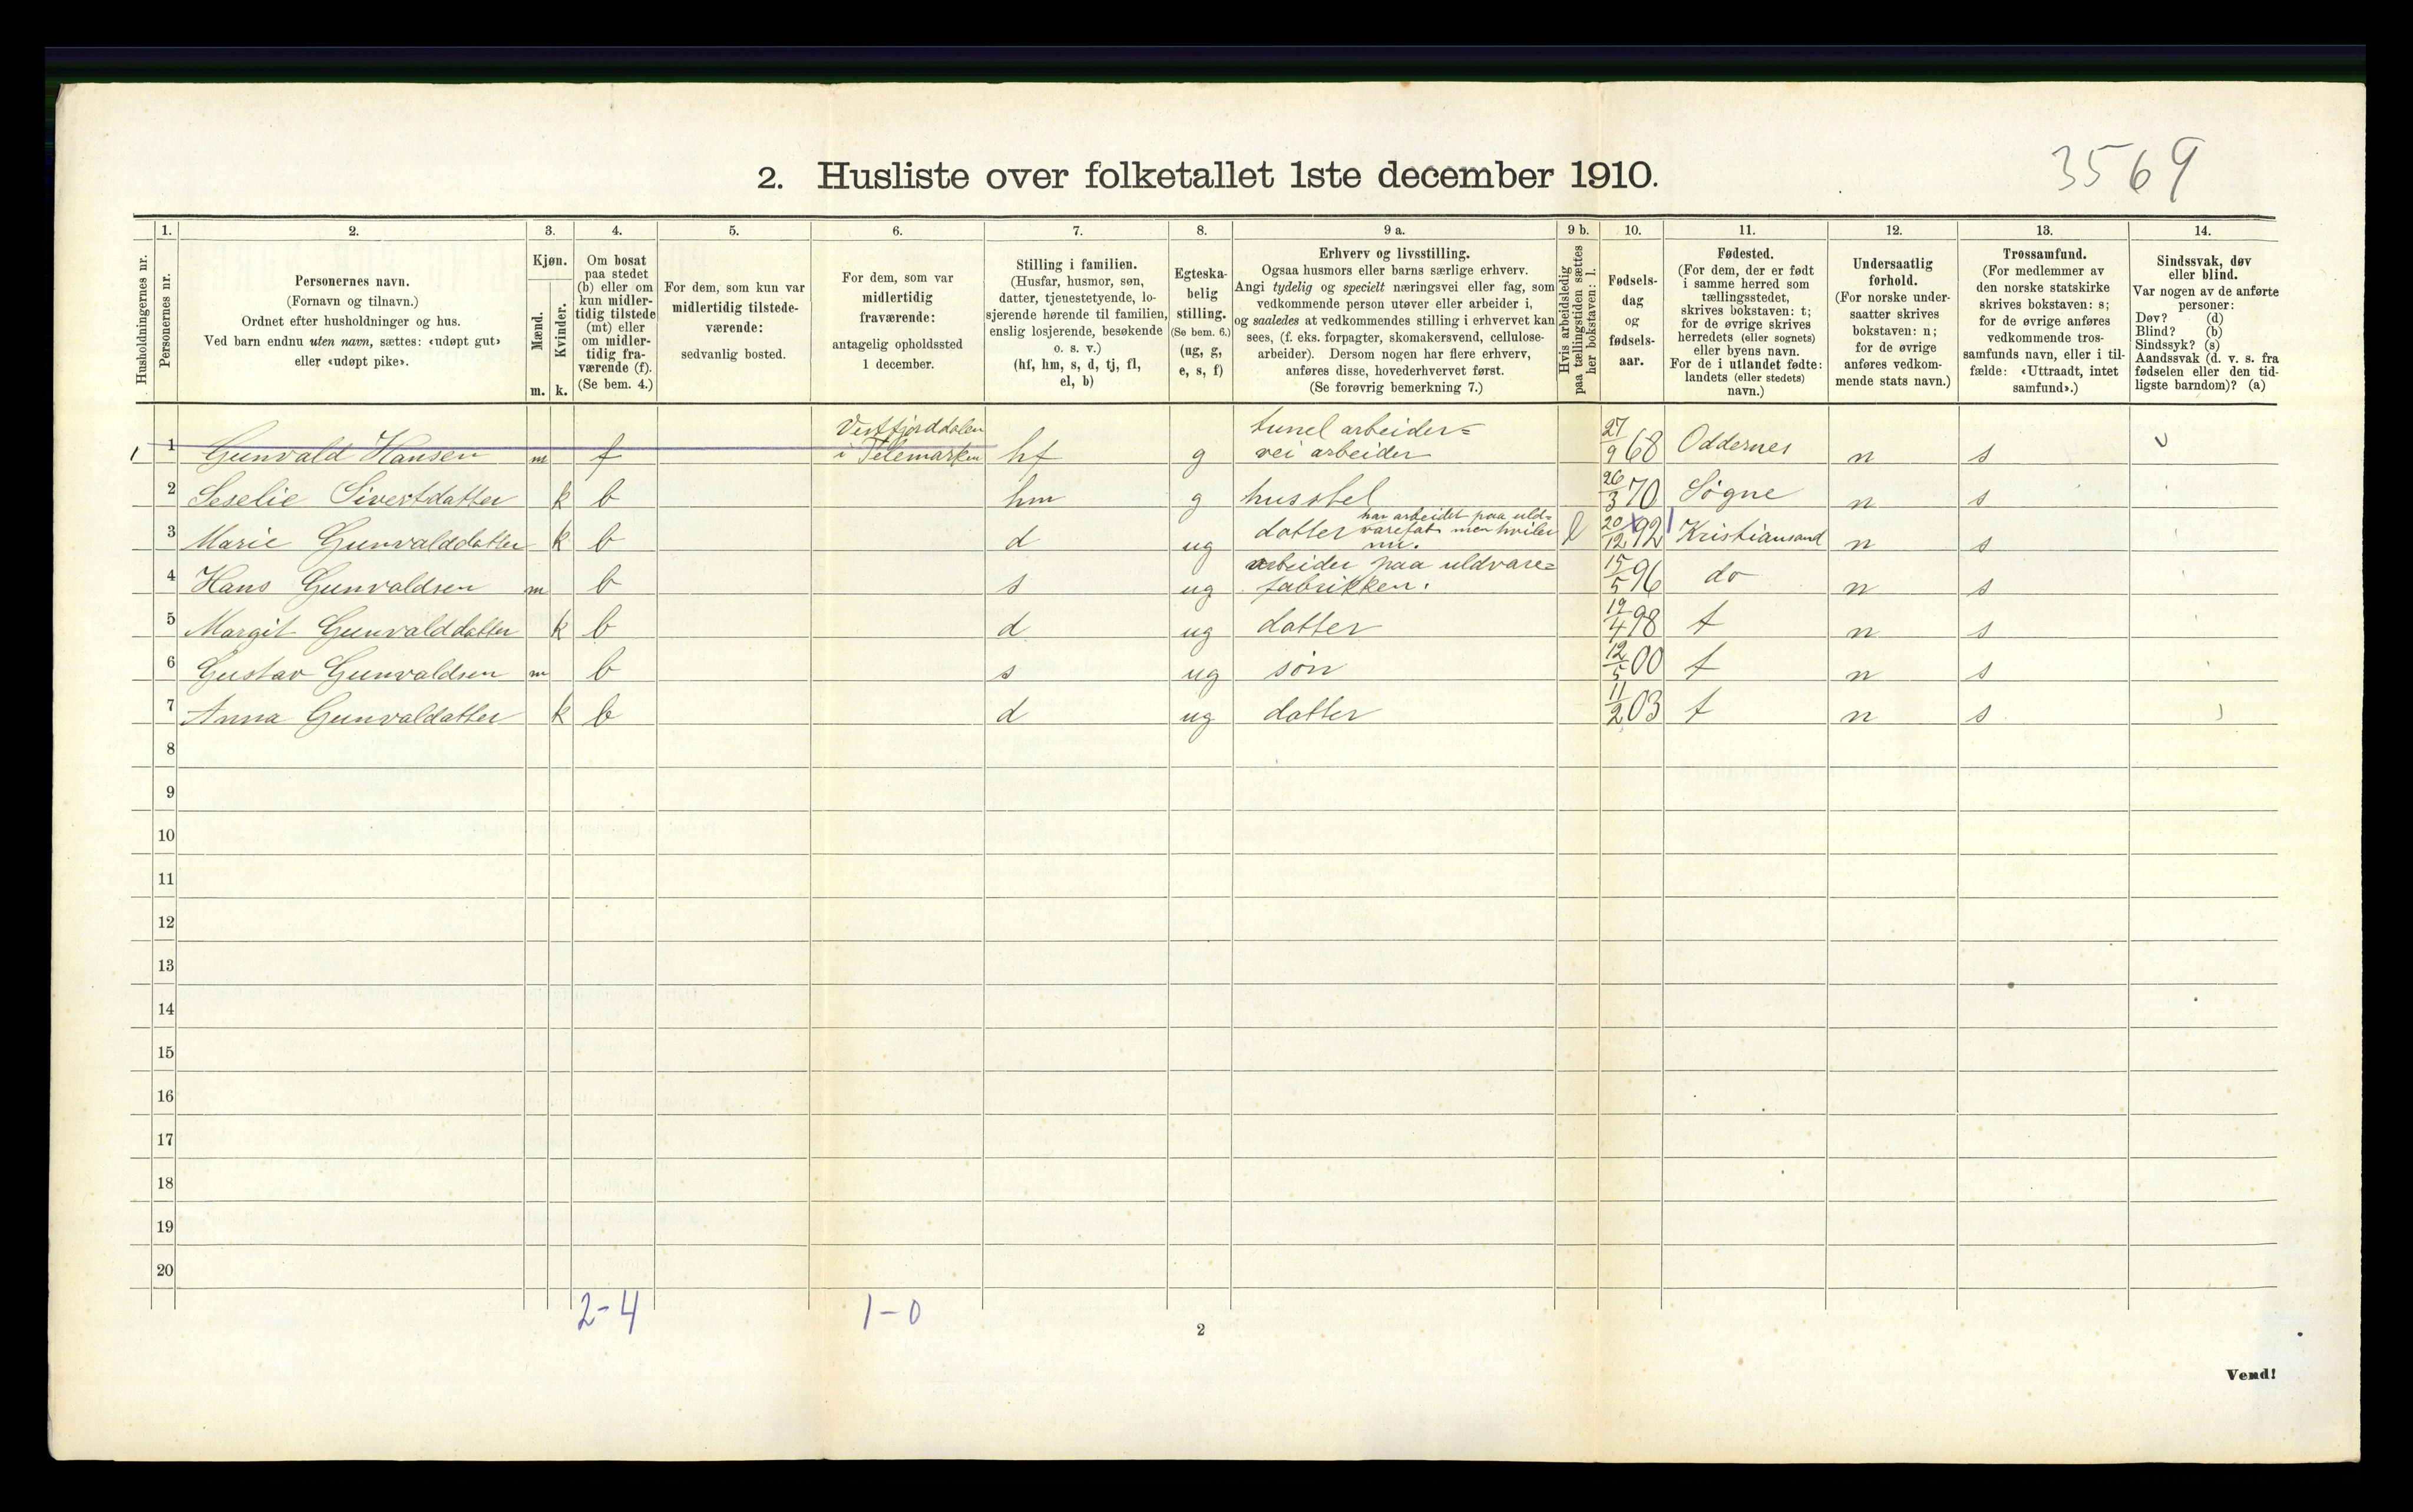 3569
2. Husliste over folketallet 1ste december 1910.
Husholdningernes nr.
1.
Personernes nr.
2.
Personernes navn.
(Fornavn og tilnavn.)
Ordnet efter husholdninger og hus.
Ved barn endnu uten navn, sættes: «udøpt gut»
eller «udøpt pike».
3.
Kjøn.
Mænd.
Kvinder.
m. k.
4.
Om bosat
paa stedet
(b) eller om
kun midler-
tidig tilstede
(mt) eller
om midler-
tidig fra-
værende (f).
(Se bem. 4.)
5.
For dem, som kun var
midlertidig tilstede-
værende:
sedvanlig bosted.
6.
For dem, som var
midlertidig
fraværende:
antagelig opholdssted
1 december.
7.
Stilling i familien.
(Husfar, husmor, søn,
datter, tjenestetyende, lo-
sjerende hørende til familien,
enslig losjerende, besøkende
o. s. v.)
(hf, hm, s, d, tj, fl,
el, b)
8.
Egteska-
belig
stilling.
(Se bem. 6.)
(ug, g,
e, s, f)
9 a.
Erhverv og livsstilling.
Ogsaa husmors eller barns særlige erhverv.
Angi tydelig og specielt næringsvei eller fag, som
vedkommende person utøver eller arbeider i,
og saaledes at vedkommendes stilling i erhvervet kan
sees, (f. eks. forpagter, skomakersvend, cellulose-
arbeider). Dersom nogen har flere erhverv,
anføres disse, hovederhvervet først.
(Se forøvrig bemerkning 7.)
9 b.
Hvis arbeidsledig
paa tællingstiden sættes
her bokstaven: l.
10.
Fødsels-
dag
og
fødsels-
aar.
11.
Fødested.
(For dem, der er født
i samme herred som
tællingsstedet,
skrives bokstaven: t;
for de øvrige skrives
herredets (eller sognets)
eller byens navn.
For de i utlandet fødte:
landets (eller stedets)
navn.)
12.
Undersaatlig
forhold.
(For norske under-
saatter skrives
bokstaven: n;
for de øvrige
anføres vedkom-
mende stats navn.)
13.
Trossamfund.
(For medlemmer av
den norske statskirke
skrives bokstaven: s;
for de øvrige anføres
vedkommende tros-
samfunds navn, eller i til-
fælde: «Uttraadt, intet
samfund».)
14.
Sindssvak, døv
eller blind.
Var nogen av de anførte
personer:
Døv? (d)
Blind? (b)
Sindssyk? (s)
Aandssvak (d. v. s. fra
fødselen eller den tid-
ligste barndom)? (a)
1 1 Gunvald Hansen m f Vestfjorddalen i Telemarken hf g tunel arbeider= vei arbeider 27/9 68 Oddernes n s
2 Seselie Sivertdatter k b hm g husstel 26/3 70 Søgne n s
3 Marie Gunvalddatter k b d ug datter har arbeidet paa uld= varefab men hviler nu. l 20/12 92 Kristiansand n s
4 Hans Gunvaldsen m b s ug arbeider paa uldvare= fabrikken. 15/5 96 do n s
5 Margit Gunvalddatter k b d ug datter 19/4 98 t n s
6 Gustav Gunvaldsen m b s ug søn 12/5 00 t n s
7 Anna Gunvaldatter k b d ug datter 11/2 03 t n s
8
9
10
11
12
13
14
15
16
17
18
19
20
2-4 1-0
2
Vend!